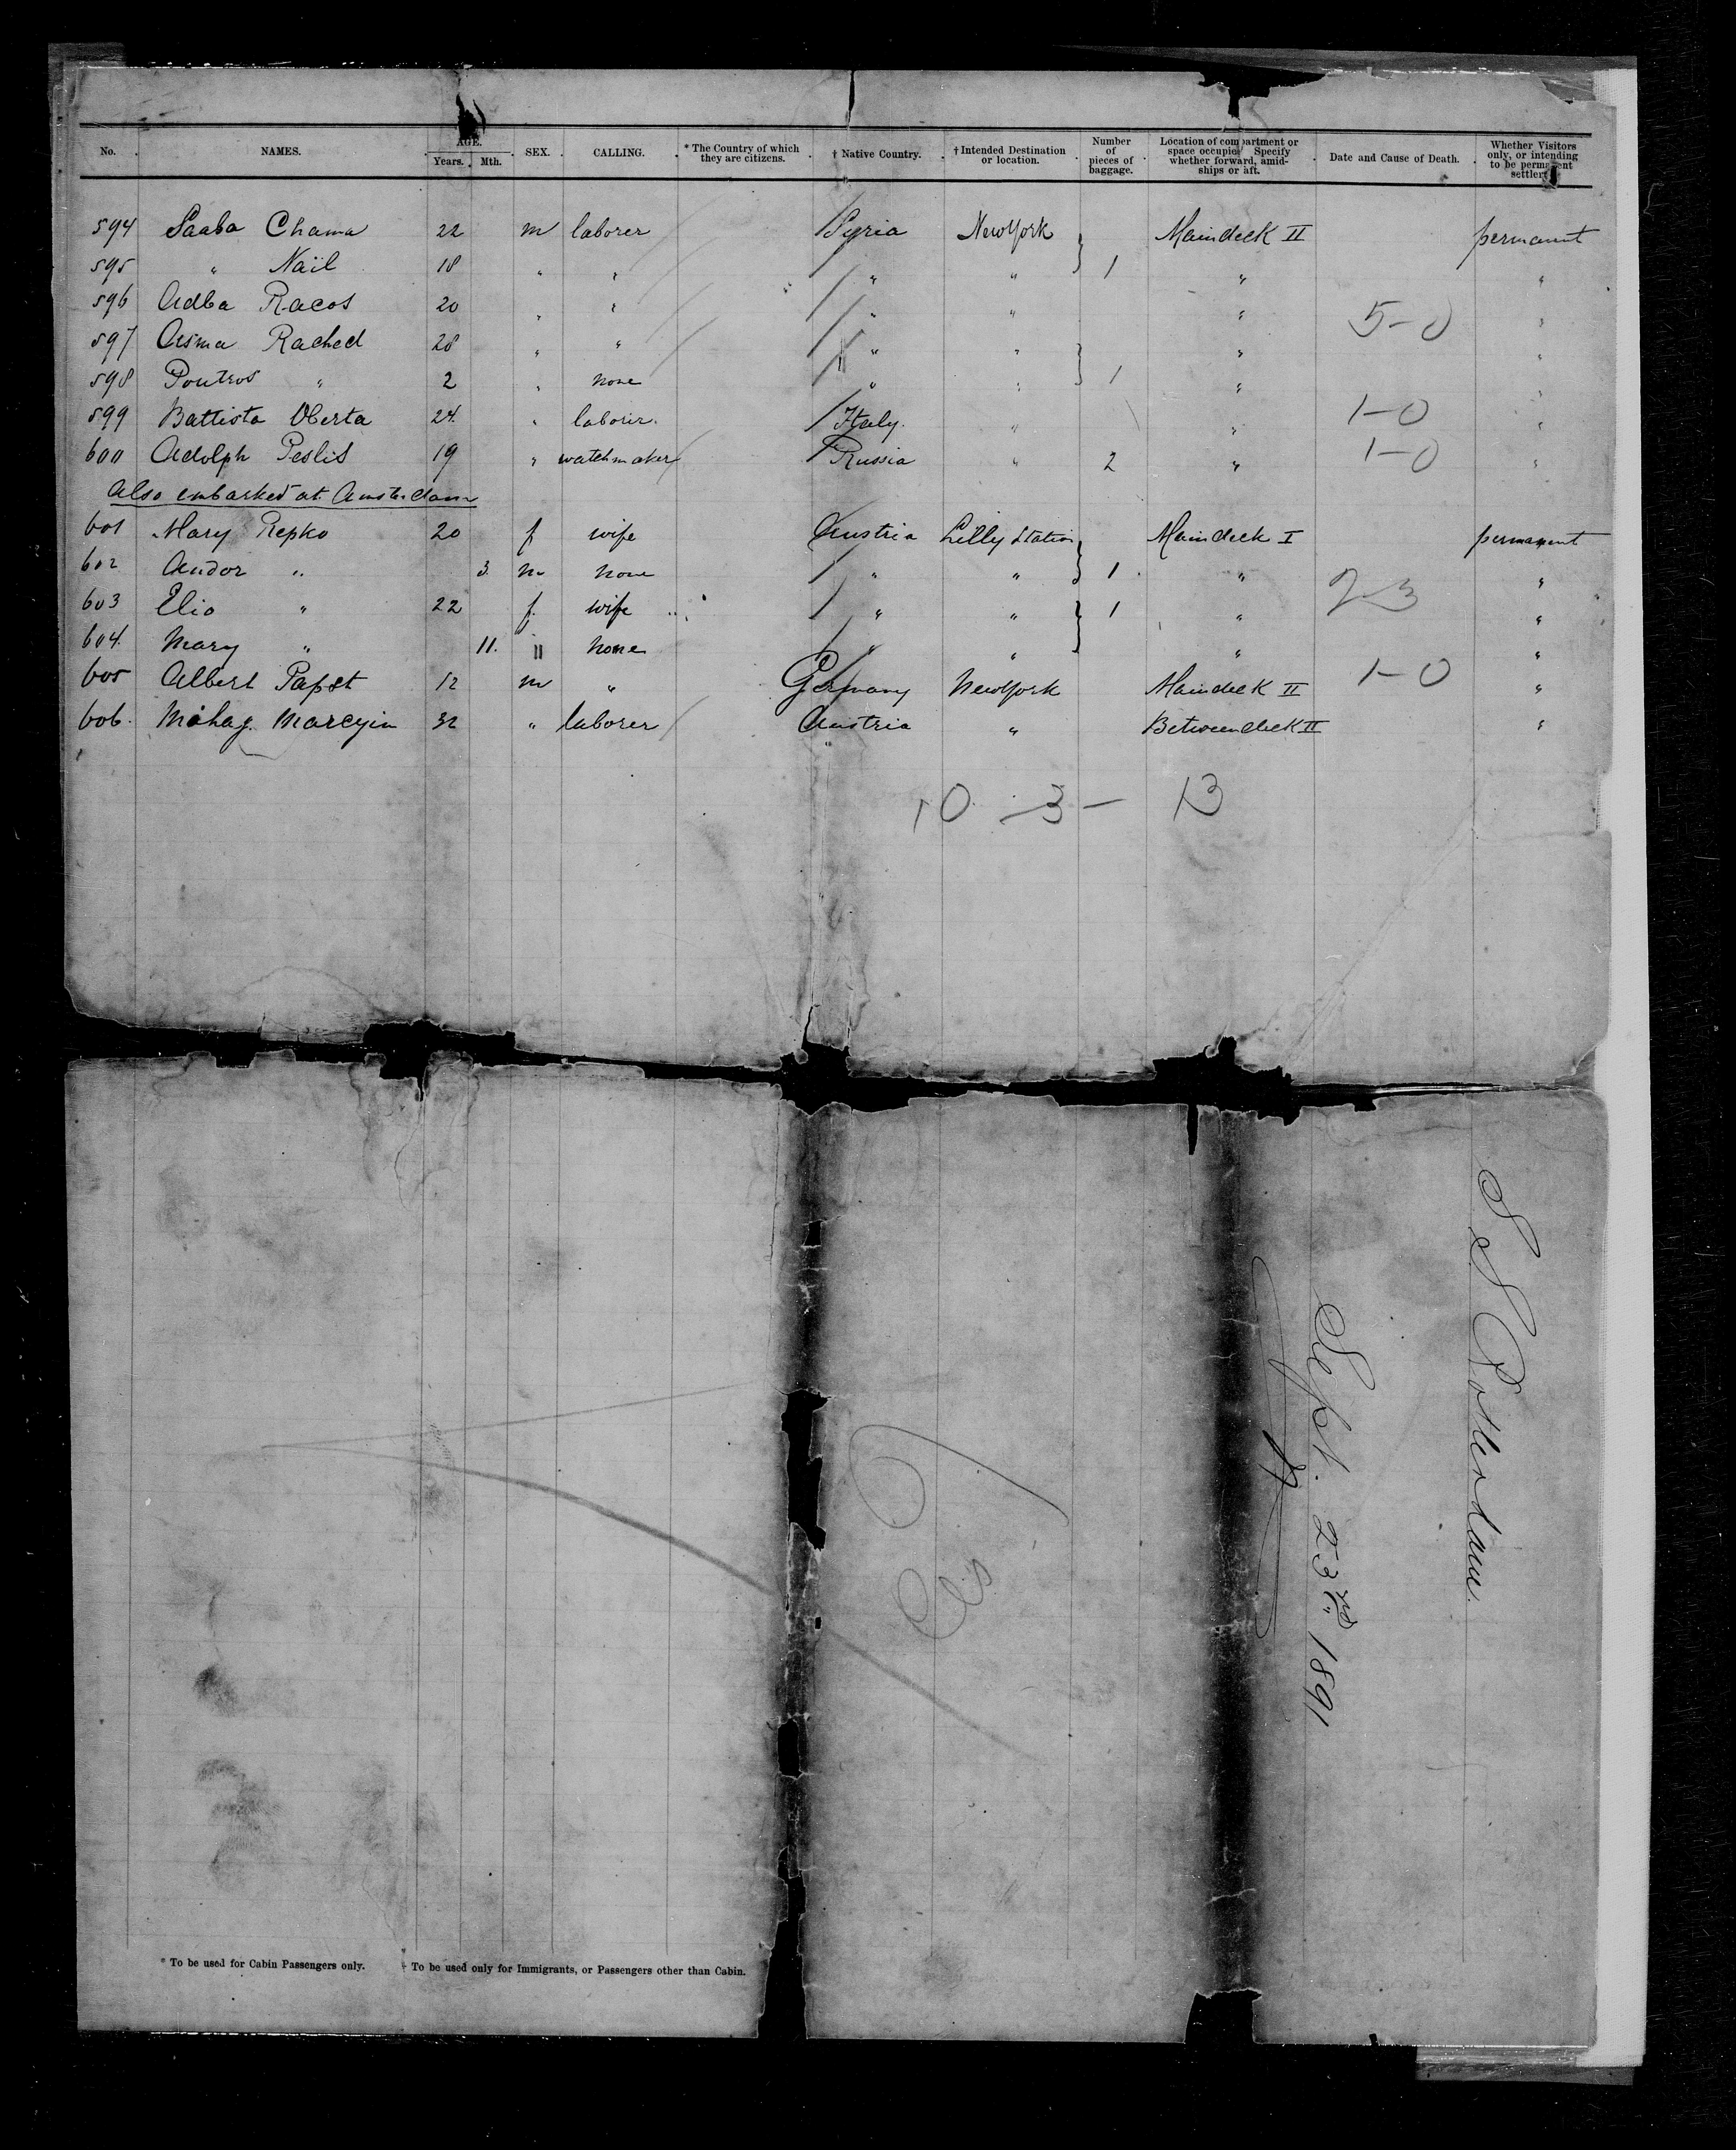 No. NAMES. AGE. Years. Mth. SEX. CALLING. * The Country of which they are citizens. † Native Country. † Intended Destination or location. Number of pieces of baggage. Location of compartment or space occupied Specify whether forward, amidships or aft. Date and Cause of Death. Whether Visitors only, or intending to be permanent settlers
594 Saaba Chama 22 m laborer Syria New York } Maindeck II permanent
595 " Naïl 18 " " " " 1 " "
596 Adba Racos 20 " " " " " 5-0 "
597 Asma Rached 28 " " " " } " "
598 Poutros " 2 " none " " 1 " "
599 Battista Oberta 24 " laborer. Italy. " " 1-0 "
600 Adolph Peslis 19 " watchmaker Russia " 2 " 1-0 "
Also embarked at Amsterdam
601 Mary Repko 20 f wife Austria Lilly Station } Maindeck I permanent
602 Andor " 3. m none " " 1 " 2-3 "
603 Elio " 22 f. wife " " } 1 " "
604. Mary " 11. " none " " " "
605 Albert Papst 12 m " Germany New York Maindeck II 1-0 "
606. Marcyin 32 " laborer Austria " Betweendeck II "
10 - 3 - 13
S S Rotterdam.
Sept. 23rd 1891
* To be used for Cabin Passengers only. † To be used only for Immigrants, or Passengers other than Cabin.